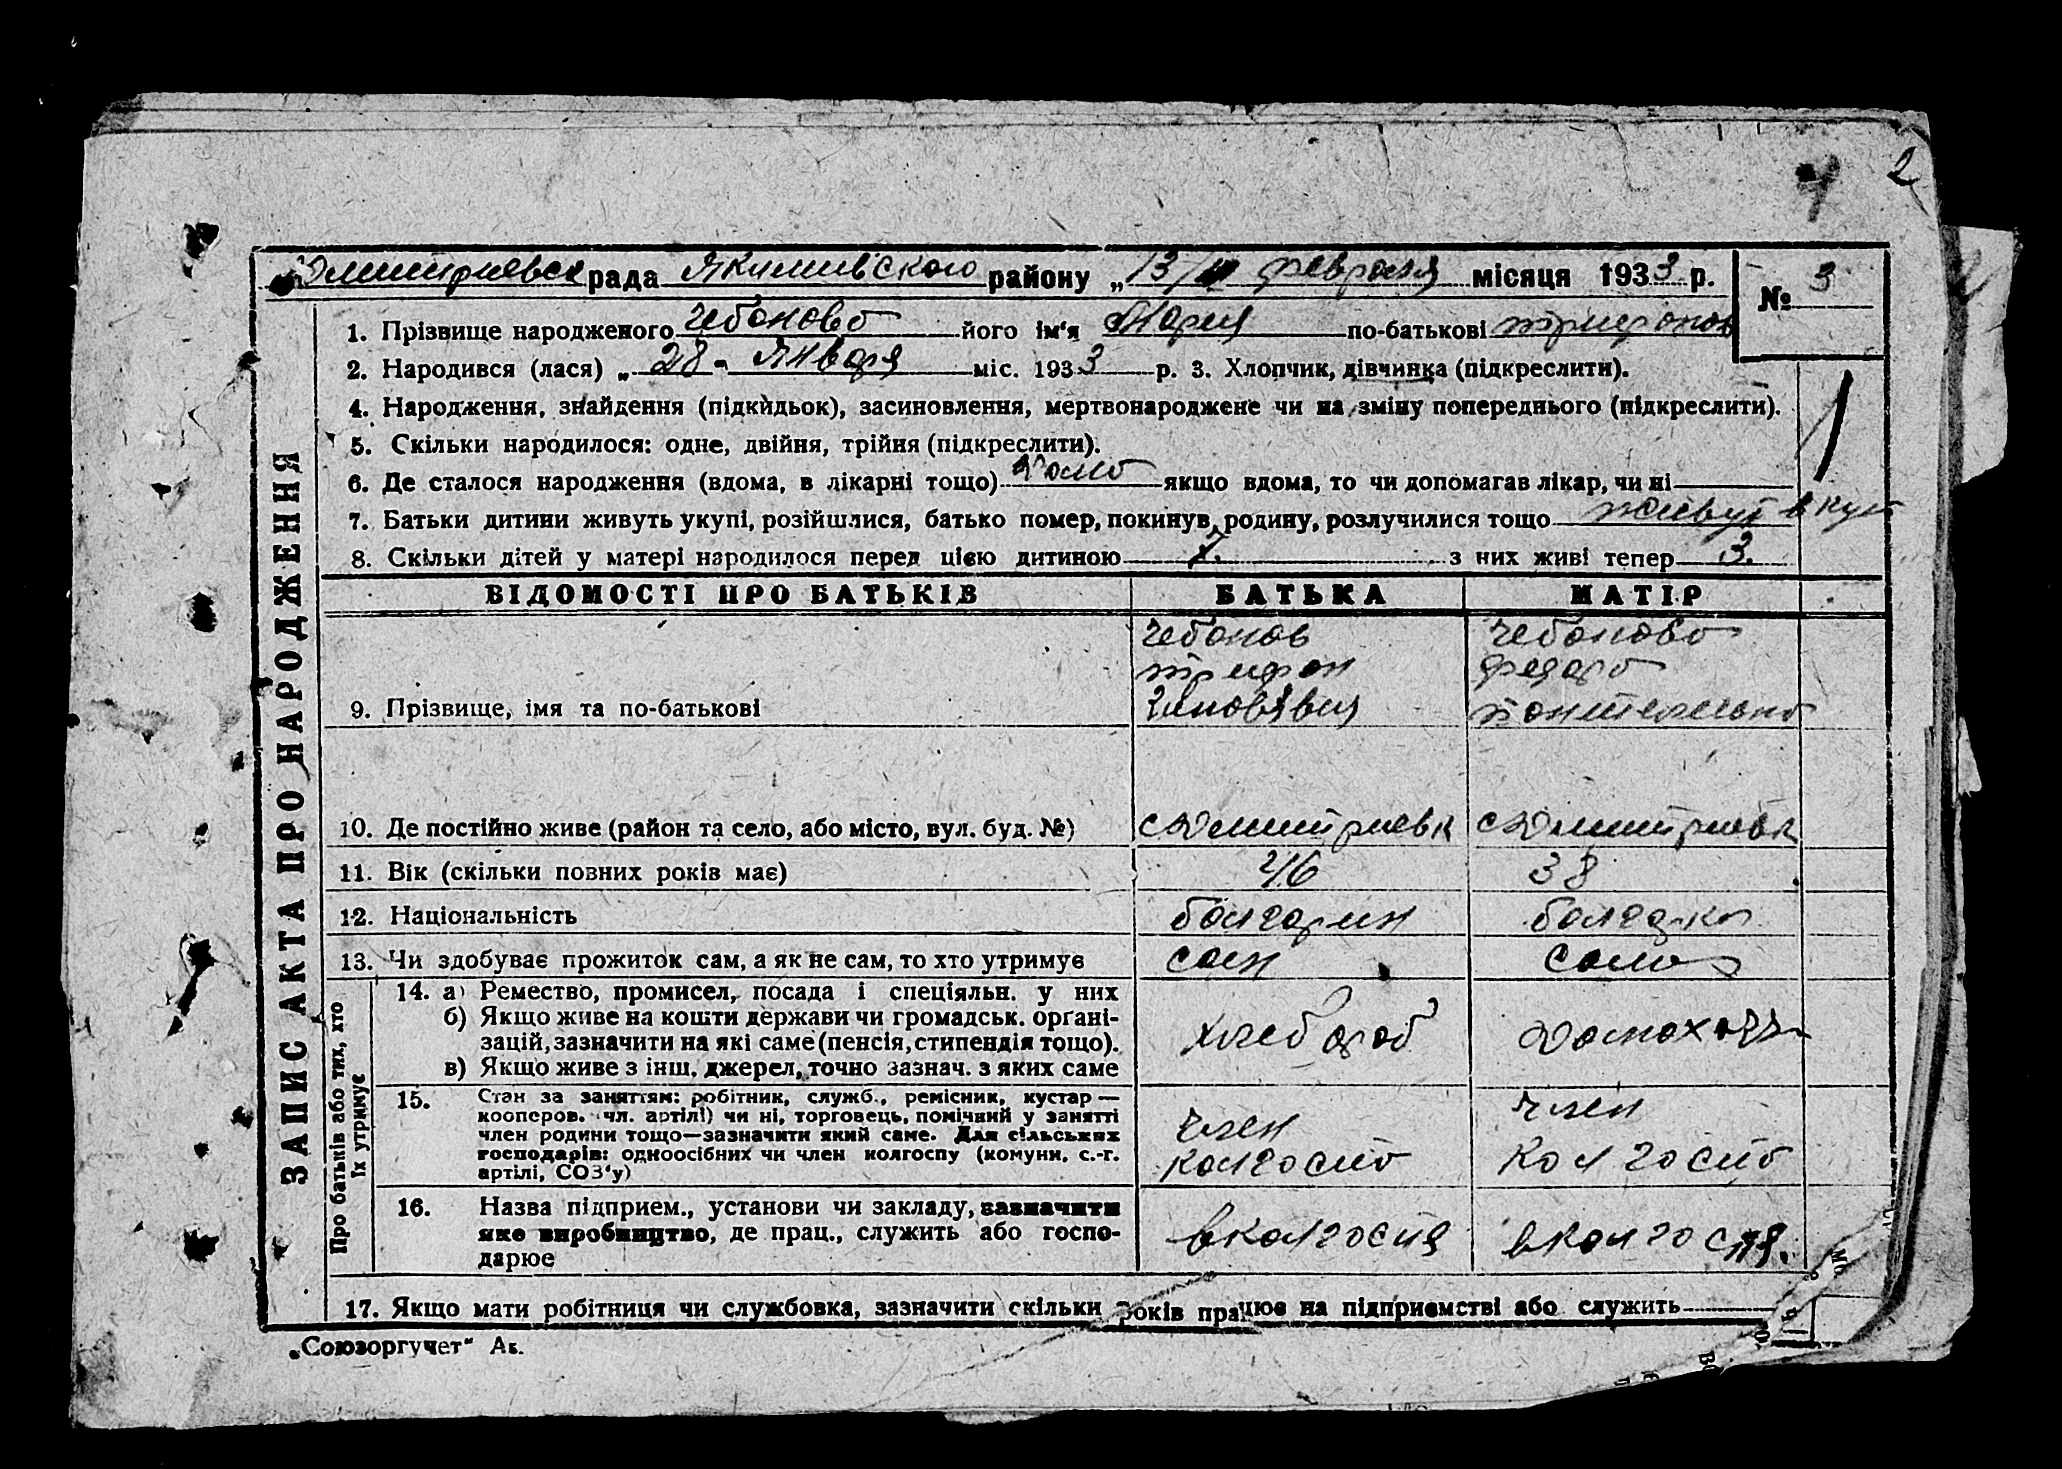 2
Дмитриевск рада Якимивского району „13/II февраля місяця 1933 р.
№ 3
1. Прізвище народженого Чебоново його ім'я Мария по-батькові Трифонов
2. Народився (лася) „28" Января міс. 1933 р. 3. Хлопчик, дівчинка (підкреслити).
4. Народження, знайдення (підкидьок), засиновлення, мертвонароджене чи на зміну попереднього (підкреслити).
5. Скільки народилося: одне, двійня, трійня (підкреслити).
6. Де сталося народження (вдома, в лікарні тощо) Домо якщо вдома, то чи допомагав лікар, чи ні
7. Батьки дитини живуть укупі, розійшлися, батько помер, покинув родину, розлучилися тощо живут вкуп
8. Скільки дітей у матері народилося перед цією дитиною 7. з них живі тепер 3.
ЗАПИС АКТА ПРО НАРОДЖЕННЯ
ВІДОМОСТІ ПРО БАТЬКІВ БАТЬКА МАТІР
Чебонов Чебоново
Трифон Федоро
9. Прізвище, імя та по-батькові
10. Де постійно живе (район та село, або місто, вул. буд. №) с Дмитриевк с Дмитриевк
11. Вік (скільки повних років має) 46 38
12. Національність болгарин болгарко
13. Чи здобуває прожиток сам, а як не сам, то хто утримує сам само
Про батьків або тих, хто
їх утримує
14. а) Ремество, промисел, посада і спеціяльн. у них
б) Якщо живе на кошти держави чи громадськ. органі-
зацій, зазначити на які саме (пенсія, стипендія тощо). хлебороб
в) Якщо живе з інш. джерел, точно зазнач. з яких саме
15. Стан за заняттям: робітник, служб., ремісник, кустар —
кооперов. чл. артілі) чи ні, торговець, помічний у занятті
член родини тощо—зазначити який саме. Для сільських член член
господарів: одноосібних чи член колгоспу (комуни, с.-г. колгоспо колгоспо
артілі, СОЗ'у)
16. Назва підприєм., установи чи закладу, зазначити
яке виробництво, де прац., служить або госпо- вколгоспя вколгоспя.
дарює
17. Якщо мати робітниця чи службовка, зазначити скільки років працює на підприємстві або служить
„Союзоргучет"